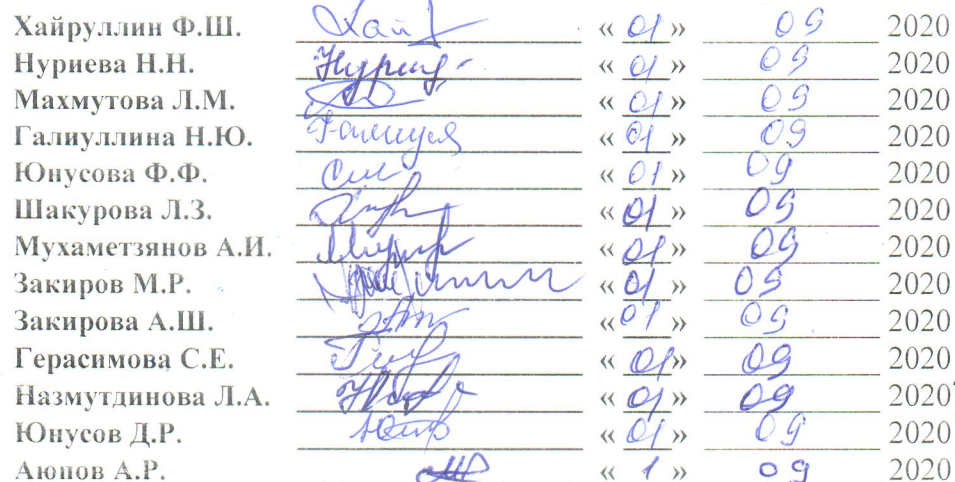 Хайруллин Ф.Ш. Хай « 01 » 09 2020
Нуриева Н.Н. « 01 » 09 2020
Махмутова Л.М. « 01 » 09 2020
Галиуллина Н.Ю. « 01 » 09 2020
Юнусова Ф.Ф. « 01 » 09 2020
Шакурова Л.З. « 01 » 09 2020
Мухаметзянов А.И. « 01 » 09 2020
Закиров М.Р. « 01 » 09 2020
Закирова А.Ш. « 01 » 09 2020
Герасимова С.Е. « 01 » 09 2020
Назмутдинова Л.А. « 01 » 09 2020
Юнусов Д.Р. « 01 » 09 2020
Аюпов А.Р. « 1 » 09 2020